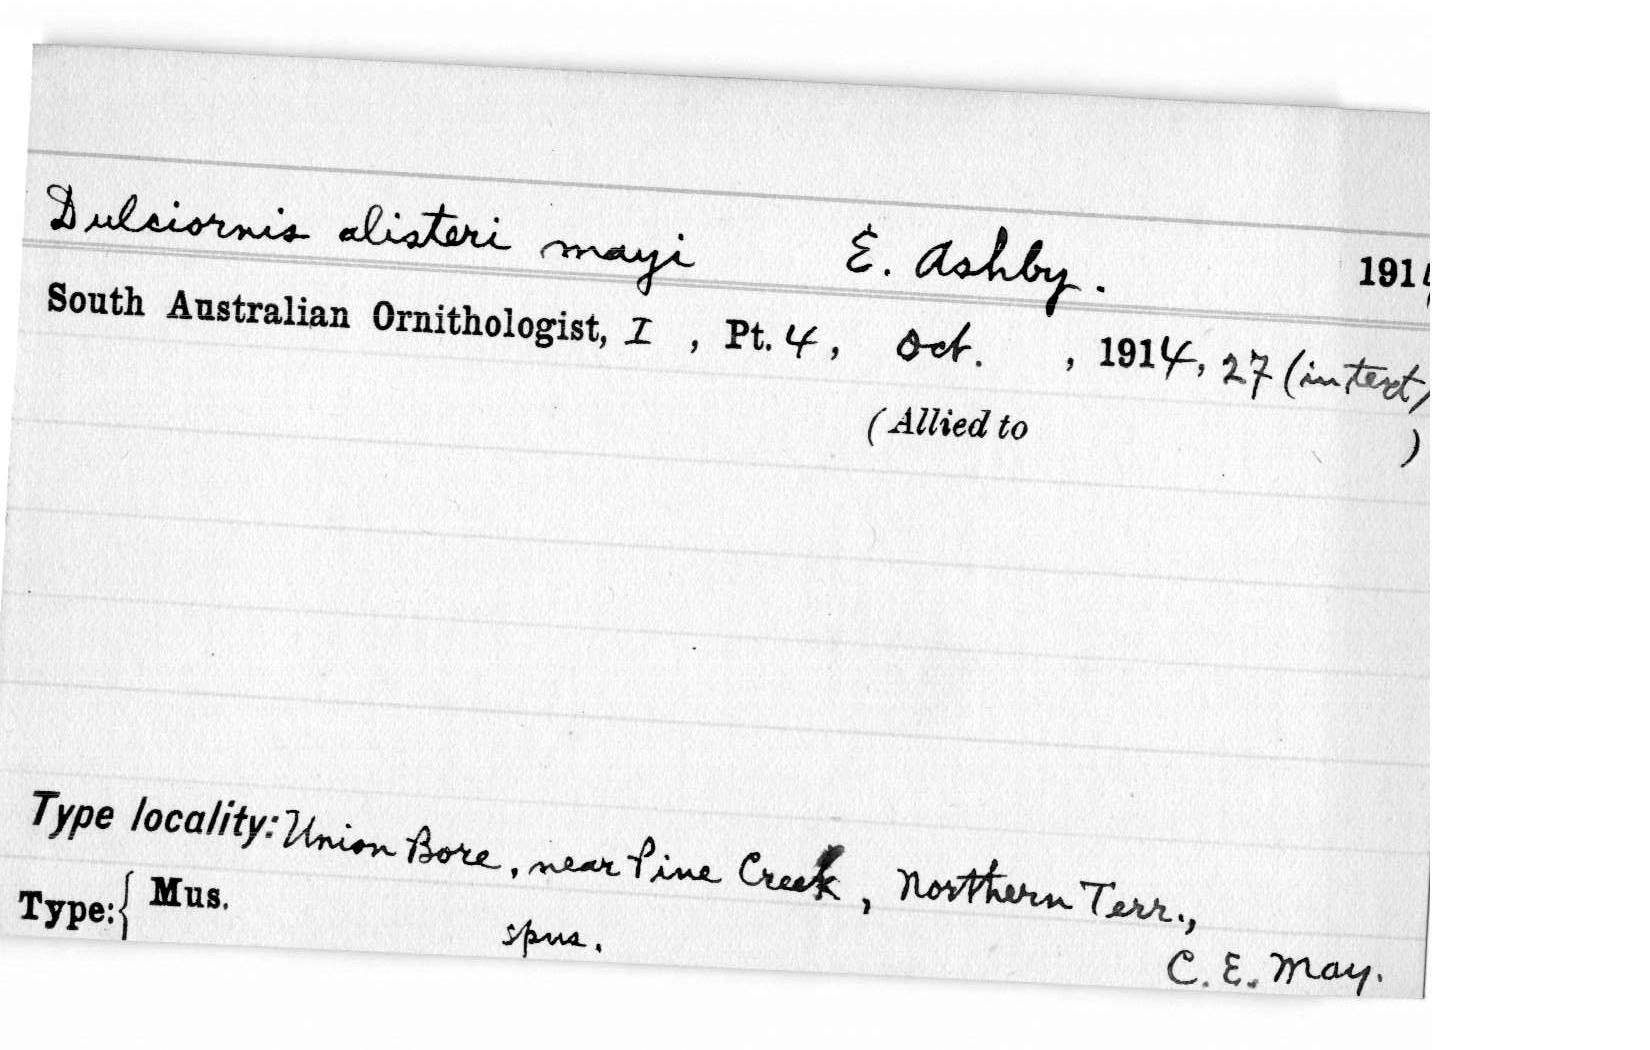 Dulciornis alisteri mayi E. Ashby. 1914
South Australian Ornithologist, I , Pt. 4, Oct. , 1914, 27 (in text)
(Allied to )
Type locality: Union Bore, near Pine Creek, Northern Terr.,
Type: { Mus.
spns.
C. E. May.